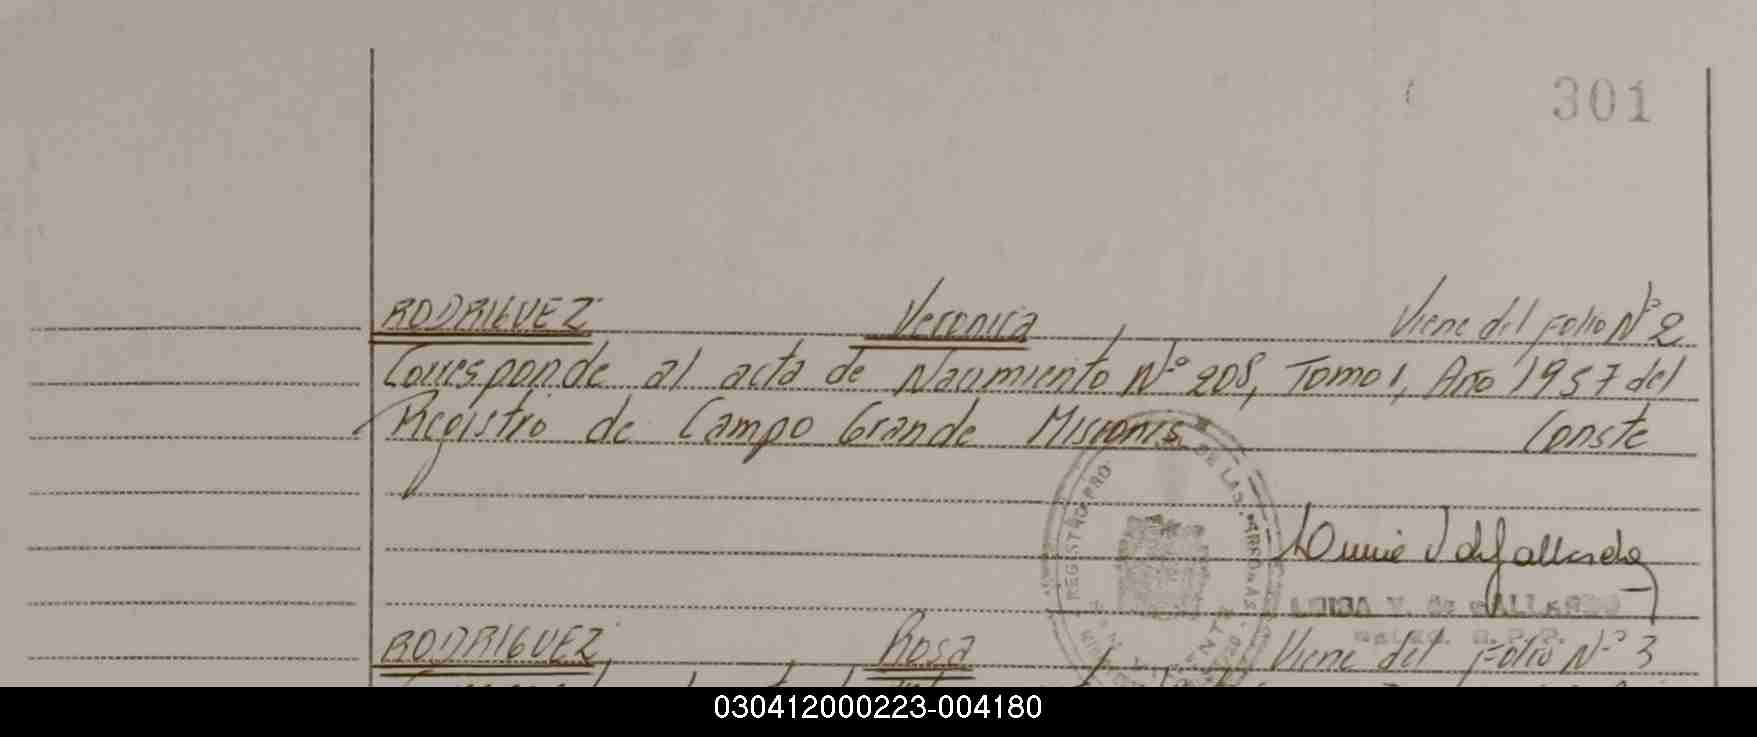 301
RODRIGUEZ Veronica, Viene del Folio Nº 2
Corresponde al acta de Nacimiento Nº 208, Tomo 1, Año 1957 del
Registro de Campo Grande Misiones Conste
REGISTRO PRO DE LAS PERSONAS
RODRIGUEZ, Rosa, Viene del Folio Nº 3
030412000223-004180